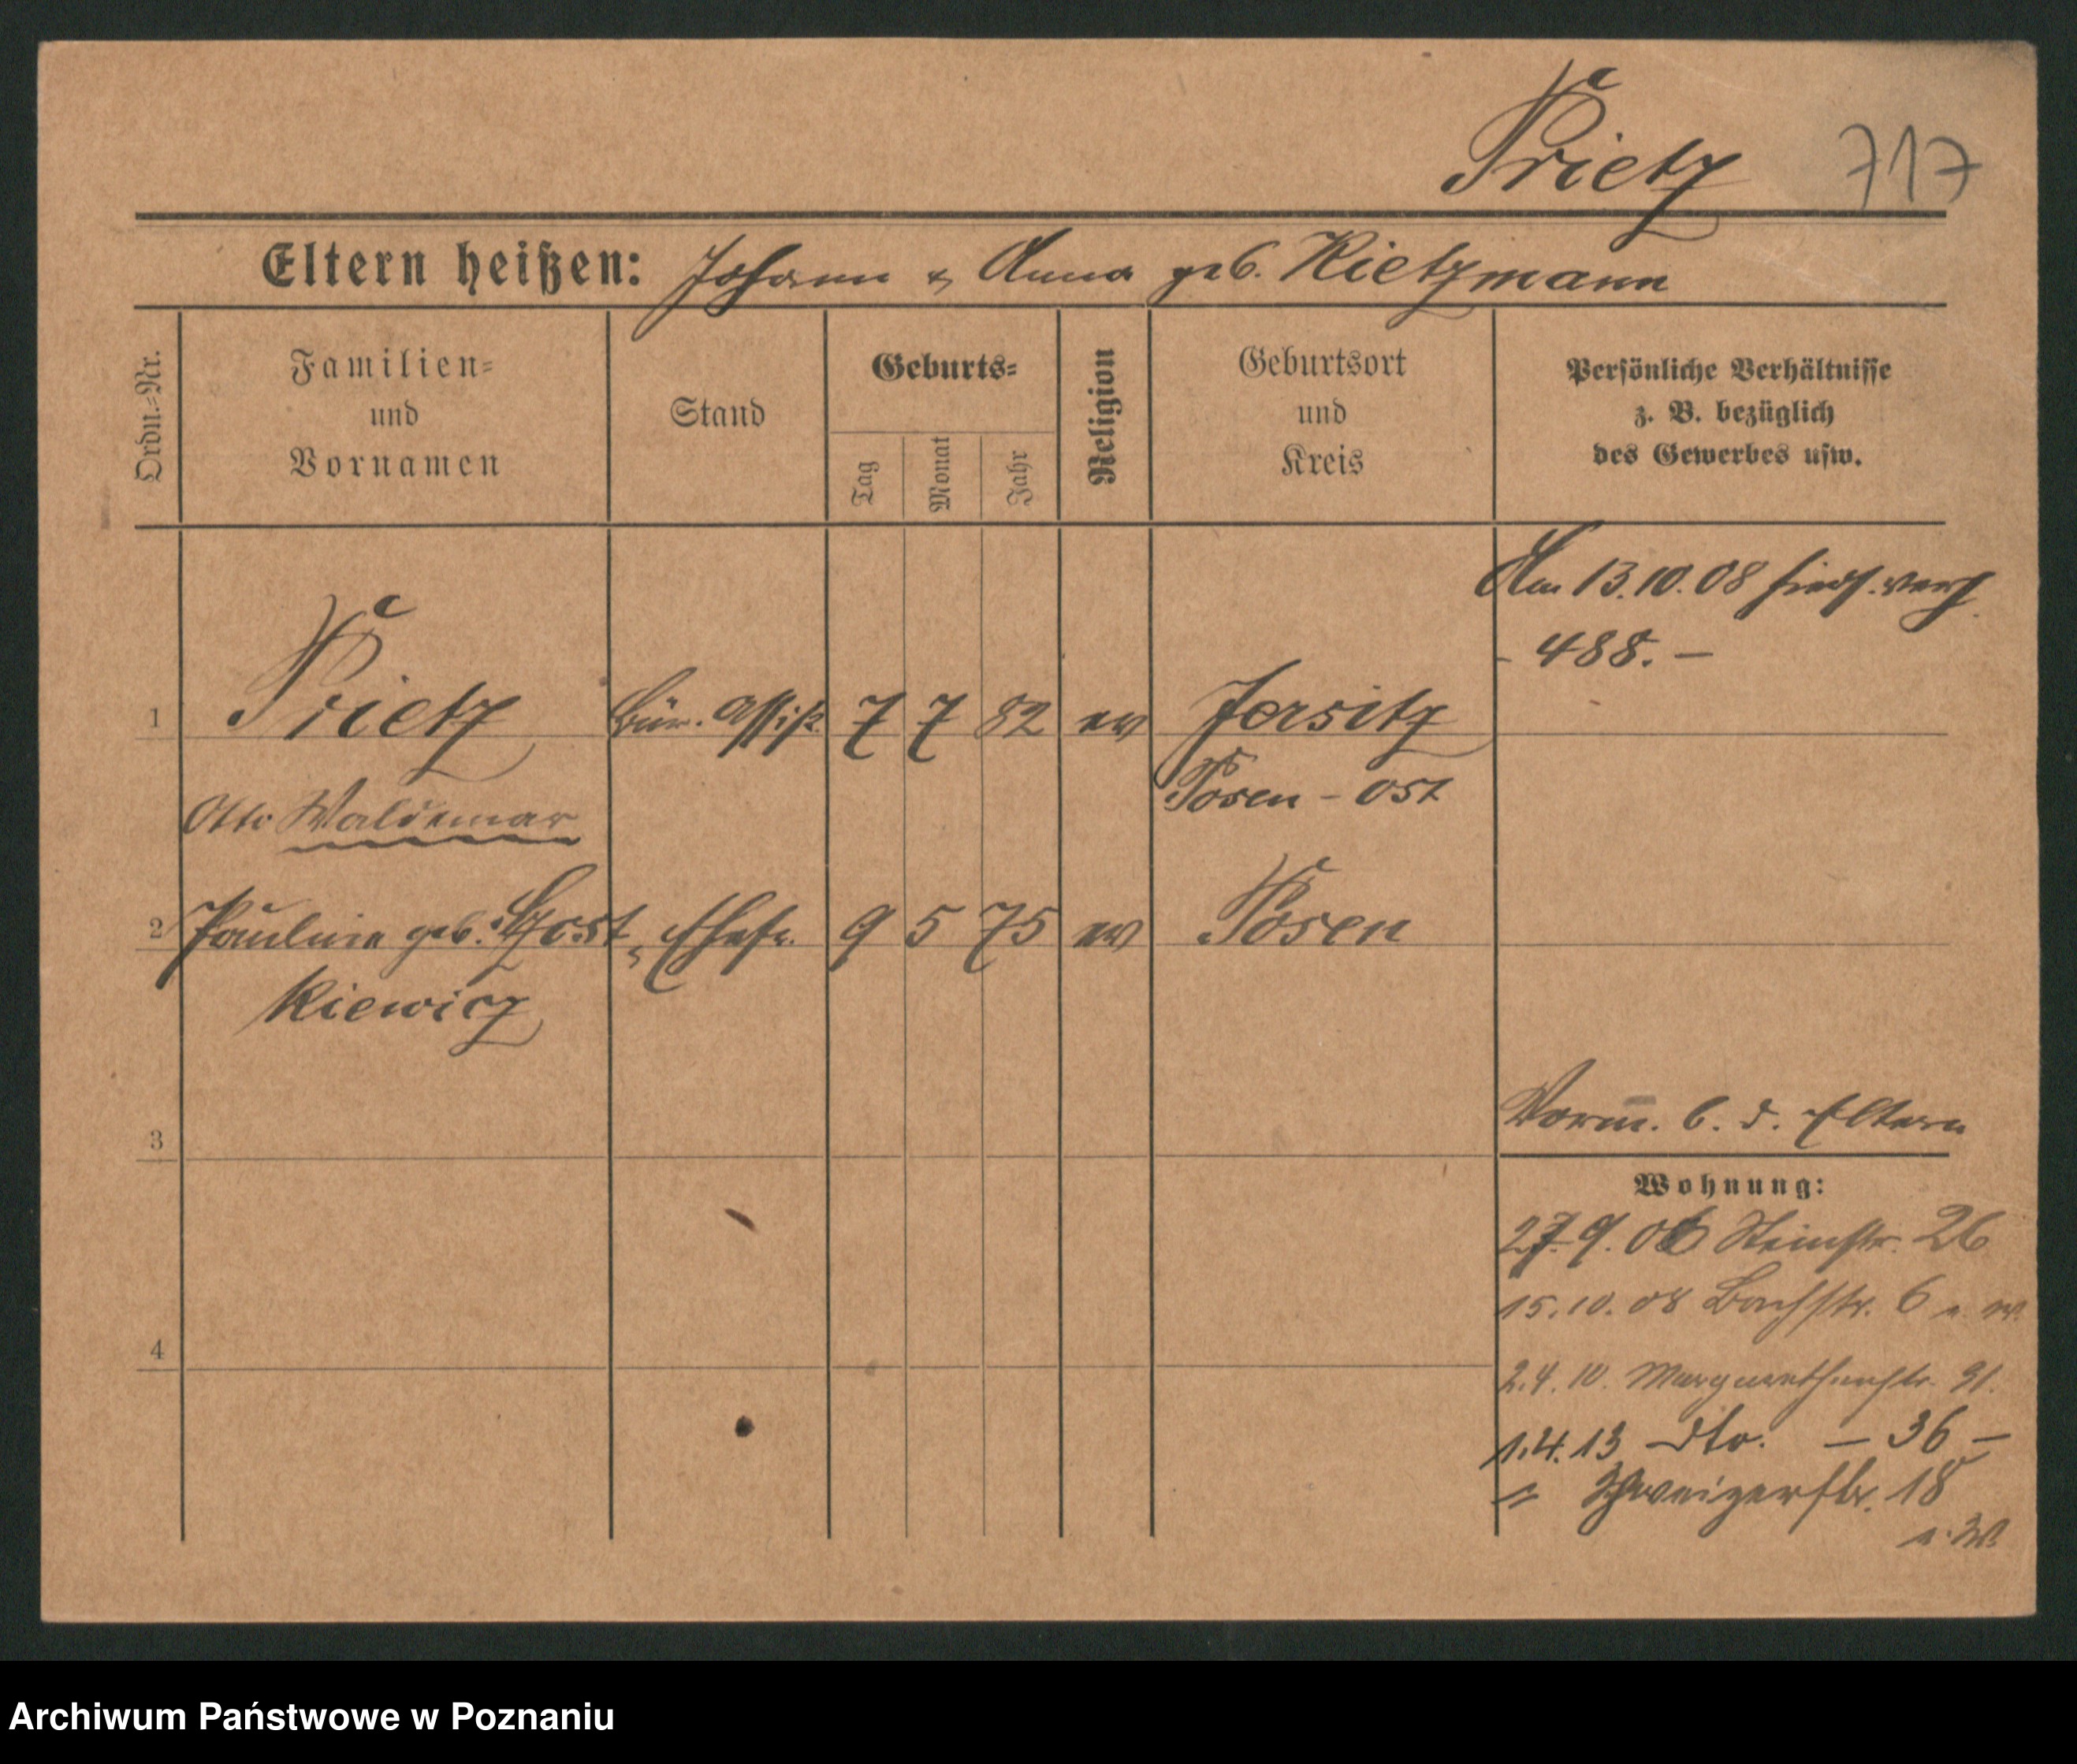 Prietz 717
Eltern heißen: Johann & Anna geb. Rietzmann
Ordn.-Nr.
Familien-
und
Vornamen
Stand
Geburts-
Tag
Monat
Jahr
Religion
Geburtsort
und
Kreis
Persönliche Verhältnisse
z. B. bezüglich
des Gewerbes usw.
Am 13.10.08 hies. verh.
- 488. -
1 Prietz Bür. Assist. 7 7 82 ev Jersitz
Otto Waldemar Posen - Ost
2 Pauline geb. Gost- Ehefr. 9 5 75 ev Posen
kiewicz
3
Vorm. b. d. Eltern
Wohnung:
27.9.06 Steinstr. 26
15.10.08 Bachstr. 6 e. W.
4
2.4.10. Margarethenstr. 91.
1.4.13 dto. - 36 -
" Schweizerstr. 18
e. W.
Archiwum Państwowe w Poznaniu